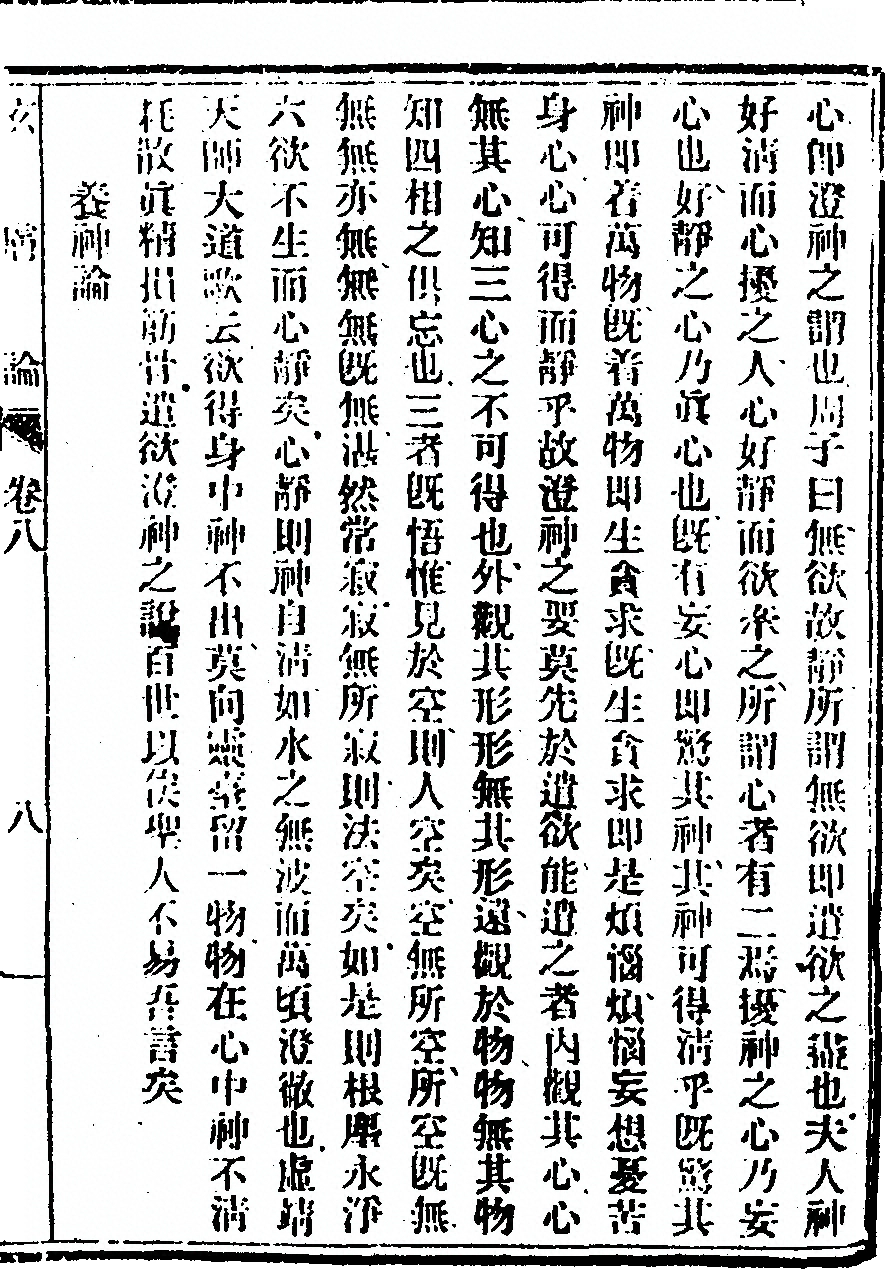 心卽澄神之謂也周子曰無欲故靜所謂無欲卽遣欲之盡也夫人神
好淸而心擾之人心好靜而欲牽之所謂心者有二焉擾神之心乃妄
心也好靜之心乃眞心也旣有妄心卽驚其神其神可得淸乎旣驚其
神卽着萬物旣着萬物卽生貪求旣生貪求卽是煩惱煩惱妄想憂苦
身心心可得而靜乎故澄神之要莫先於遣欲能遣之者內觀其心心
無其心知三心之不可得也外觀其形形無其形遠觀於物物無其物
知四相之俱忘也三者旣悟惟見於空則人空矣空無所空所空旣無
無無亦無無無旣無湛然常寂寂無所寂則法空矣如是則根塵永淨
六欲不生而心靜矣心靜則神自淸如水之無波而萬頃澄徹也虛靖
天師大道歌云欲得身中神不出莫向靈臺留一物物在心中神不淸
耗散眞精損筋骨遣欲澄神之說百世以俟聖人不易吾言矣
養神論
玄 論 卷八 八